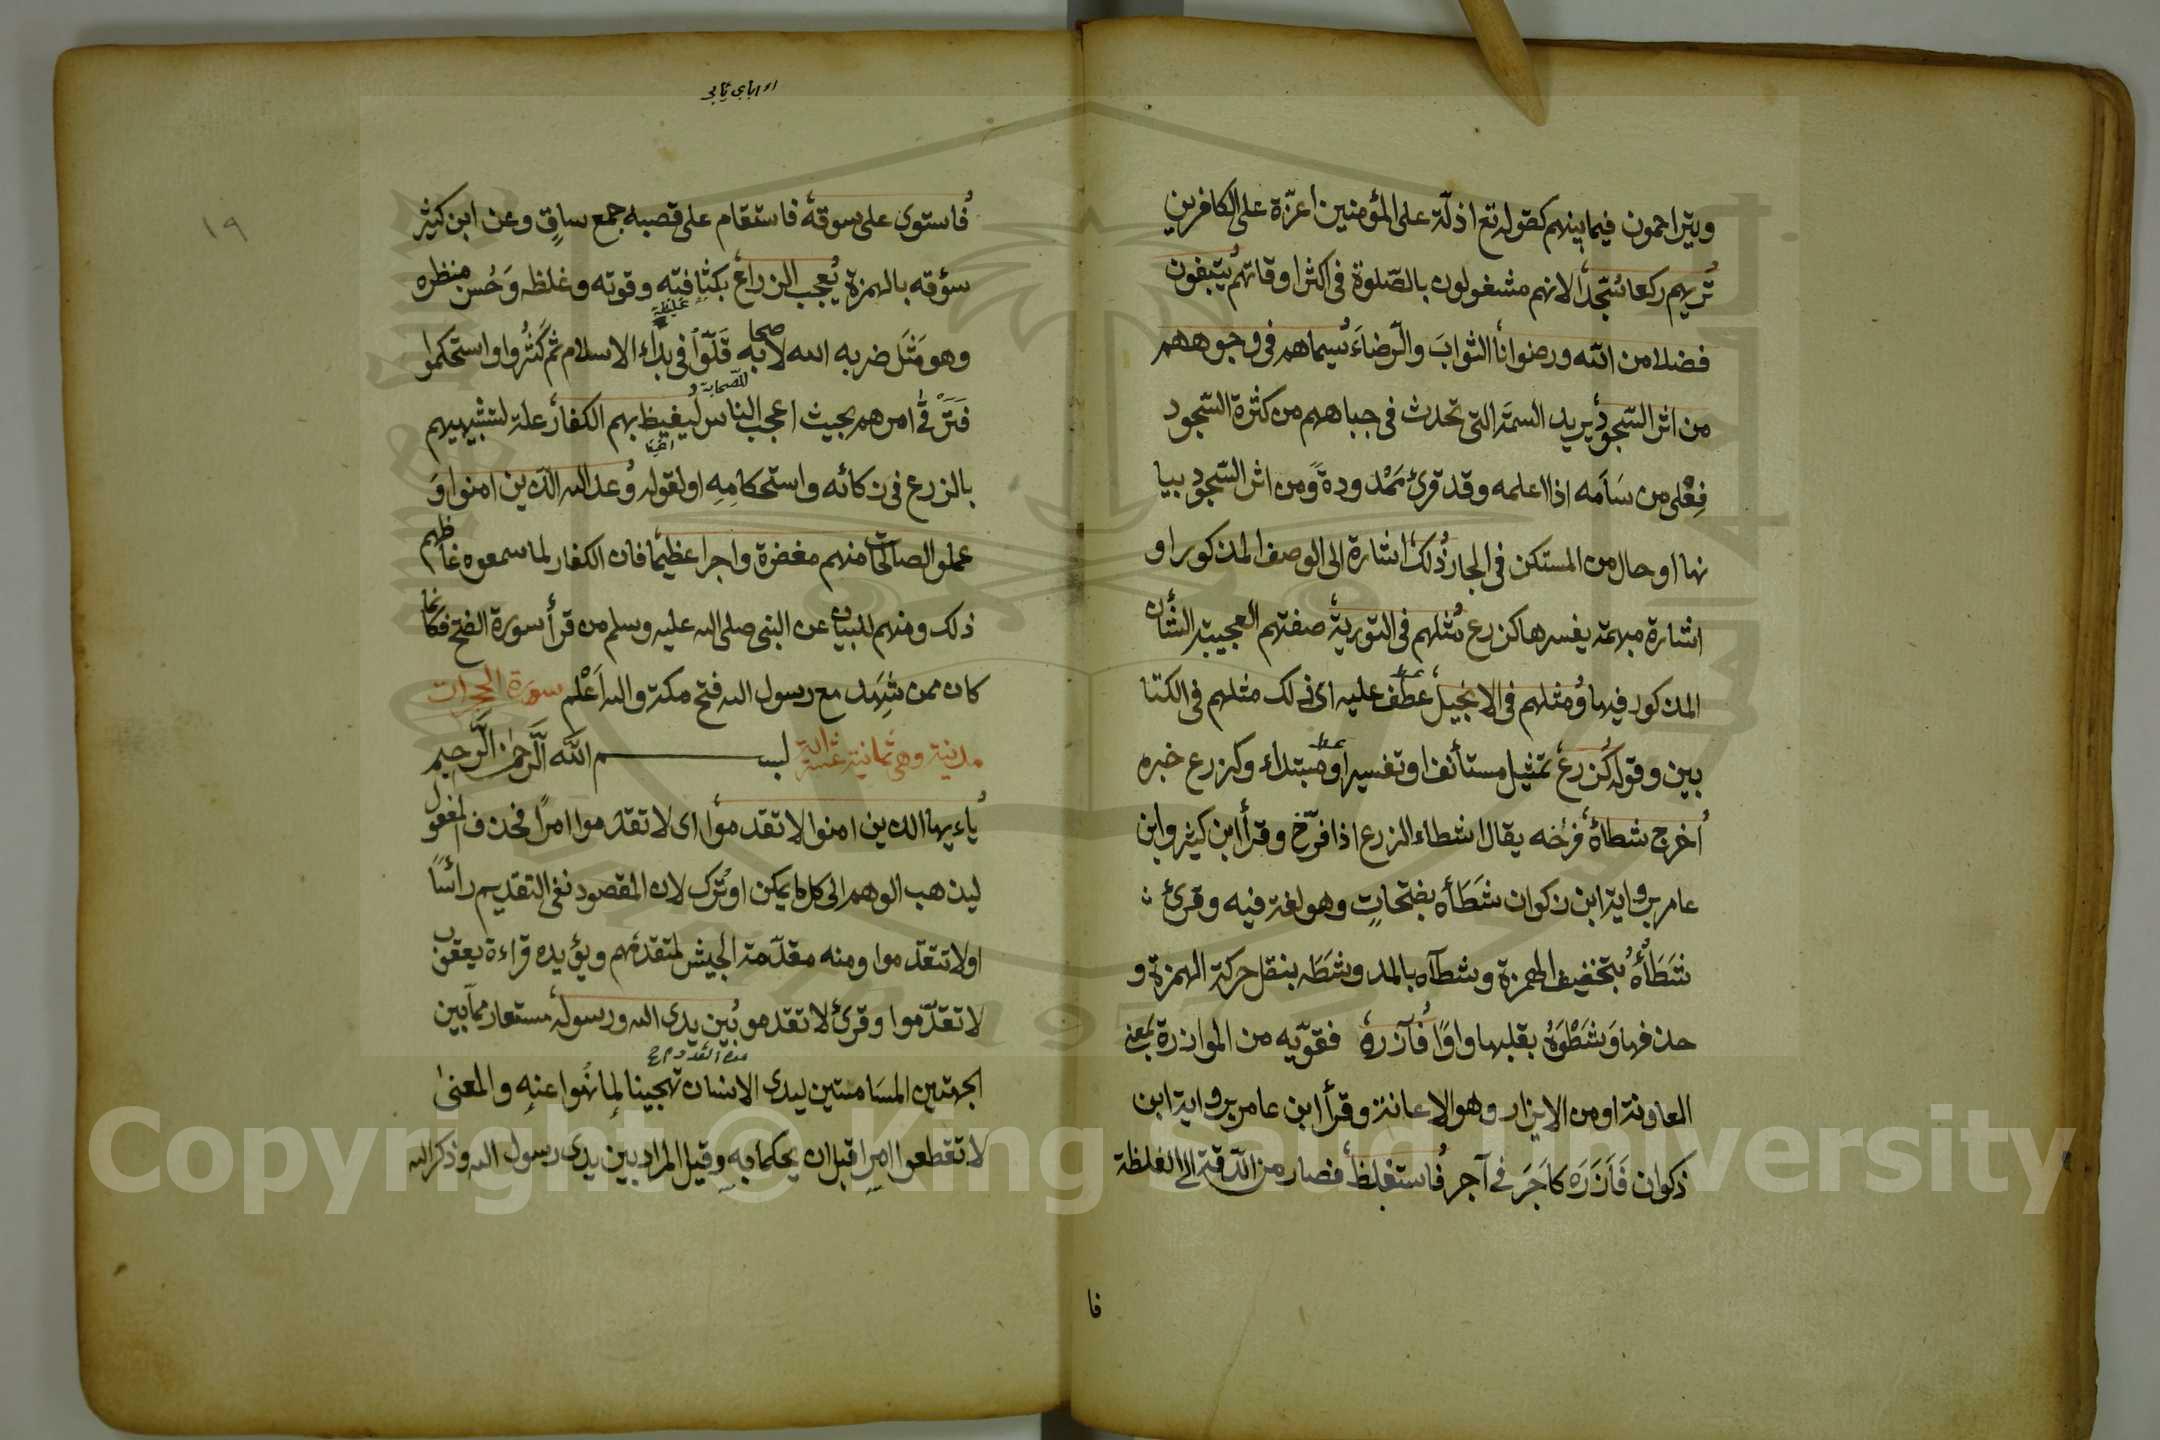 ويتراحمون فيما بينهم كقوله تع اذلّة على المؤمنين اعزّة على الكافرين
تريهم ركعا سُجّدا لانهم مشغولون بالصّلوة فى اكثر اوقاتهم يبتغون
فضلا من اللّه ورضوانا الثوابَ والرّضاءَ سيماهم فى وجوههم
من اثر السّجود يريد السمة التى تحدث فى جباههم من كثرة السّجود
فِعْلى من سَامَه اذا اعلمه وقد قرئ مَمْدودةً ومن اثر السّجود بيا
نها او حال من المستكن فى الجار ذلك اشارة الى الوصف المذكور او
اشارة مبهمة يفسرها كزرع مثلهم فى التورية صفتهم العجيبة الشأن
المذكور فيها ومثلهم فى الانجيل عطف عليه اى ذلك مثلهم فى الكتا
بين وقوله كزرع تمثيل مستأنف او تفسير او مبتداء وكزرع خبره
اخرج شطأهُ فرخه يقال اشطاء الزرع اذا فرّخ وقرأ ابن كثير وابن
عامر برواية ابن ذكوان شَطَأه بفتحاتٍ وهو لغة فيه وقرئ
شَطَأهُ بتخفيف الهمزة وشطآه بالمد وشَطَه بنقل حركة الهمزة و
حذفها وَشَطْوَهُ بقلبها واوًا فآزره فقوّيه من الموازرة بمعنى
العاونة او من الايزار وهو الاعانة وقرأ ابن عامر برواية ابن
ذكوان فَاَزَرَه كاَجَرَ فى آجر فاستغلظ فصار من الدّقة الى الغلظة
فا
١٩
فاستوى على سوقه فاستقام على قصبه جمع ساقٍ وعن ابن كثير
سؤقه بالهمزة يُعجب الزراع بكثافته وقوته وغلظه وَحُسن منظره
غلظة
وهو مَثَل ضربه الله لاصحابه قَلّوا فى بداء الاسلام ثم كثُروا واستحكموا
للصحابة
فَتَرَقّٰى امرهم بحيث اعجب الناس ليغيظ بهم الكفار علة لتشبيههم
بالزرع فى زكائه واستحكامِهِ او لقوله وعد الله الّذين امنوا وَ
عملو الصالحات منهم مغفرة واجرا عظيما فان الكفار لما سمعوه غاظهم
ذلك ومنهم للبيان عن النبى صلى الله عليه وسلم من قرأ سورة الفتح فكانما
كان ممن شَهِد مع رسول الله فتح مكة والله اَعْلم سورة الحجرات
مدنية وهى ثمانية عشرة اية بسم اللّه الرّحمن الرّحيم
ياءيها الذين امنوا لا تقدموا اى لا تقدّموا امرًا فحذف المفعول
ليذهب الوهم الى كل ما يمكن او تُرك لان المقصود نفى التقديم رأسًا
او لا تتقدّموا ومنه مقدّمة الجيش لمتقدمهم ويؤيده قراءة يعقوب
لا تقدّموا وقرئ لا تقدمو بين يدى الله ورسوله مستعار مما بين
الجهتين المسَامتين ليدى الانسان تهجينا لِما نُهوا عنه والمعنىٰ
لا تقطعوا امرا قبل ان يحكما به وقيل المراد بين يدى رسول الله وذكر الله
Copyright © King Saud University